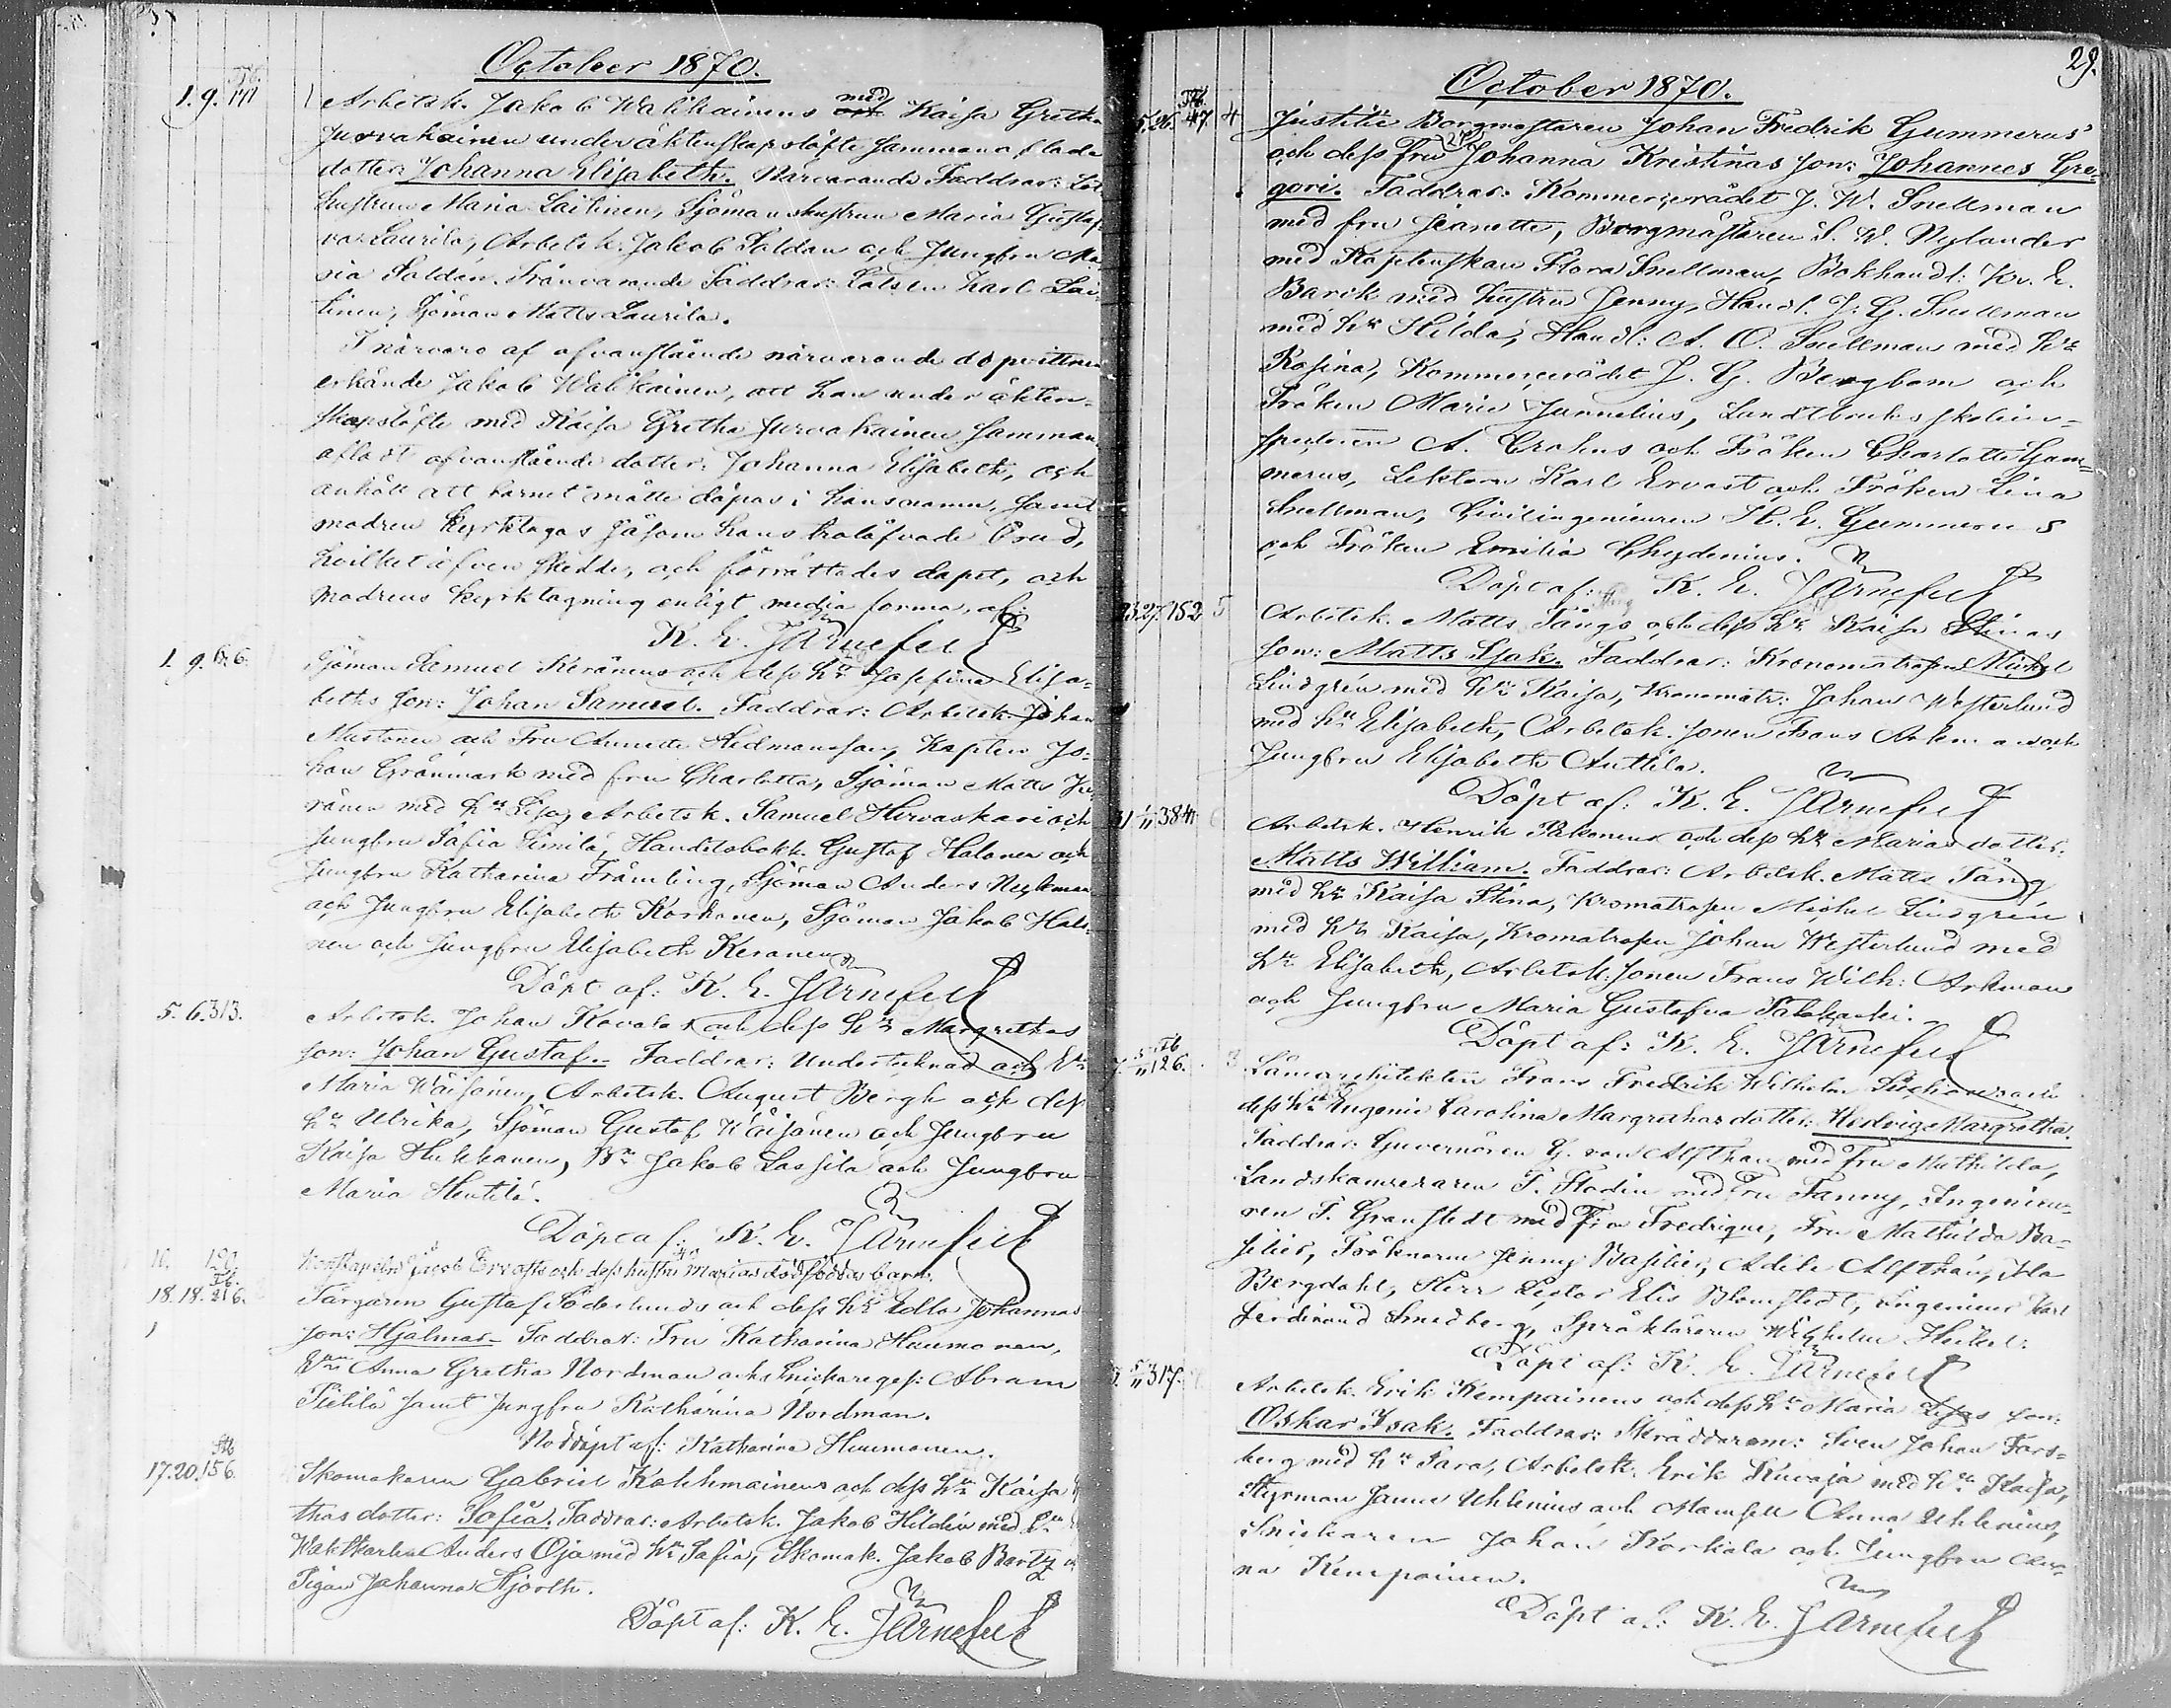 October 1870.
1. 9. 141
Arbetsk. Jakob Walikainens med Kaisa Gretha
Jurvakainen under äktenskapslöfte sammanaflade
dotter: Johanna Elisabeth. Närvarande Faddrar: Lots
hustrun Maria Laitinen, Sjömanshustrun Maria Gustaf-
va Laurila, Arbetsk: Jakob Saldan och Jungfru Ma-
ria Saldan. Frånvarande Faddrar: Lotsen Karl Lai-
tinen, Sjöman Matts Laurila.
I närvaro af ofvanstående närvarande dopvittnen
erkände Jakob Walikainen, att han under äkten-
skapslöfte med Kaisa Gretha Jurvakainen samman-
afladt ofvanstående dotter: Johanna Elisabeth, och
anhöll att barnet måtte döpas i hans namn, samt
modren kyrktagas såsom hans trolofvade Brud,
hvilket äfven skedde, och förrättades dopet, och
modrens kyrktagning enligt media forma, af:
K. E. Järnefelt
1. 9. 66.
Sjöman Samuel Keränens och dess hu Josefina Elisa-
beths son: Johan Samuel. Faddrar: Arbetsk: Johan
Mustonen och Fru Annette Hedmansson, Kapten Jo-
han Grönmark med fru Charlotta, Sjöman Matts Ke-
ränen med hu Lisa, Arbetsk. Samuel Hirvaskari och
Jungfru Sofia Simila, Handelsbokh. Gustaf Halonen och
Jungfru Katharina Främling, Sjöman Anders Nykman
och Jungfru Elisabeth Korhonen, Sjöman Jakob Halo-
nen och Jungfru Elisabeth Keränen
Döpt af: K. E. Järnefelt
5. 6. 313.
Arbetsk. Johan Kovalas och dess hu Margrethas
son: Johan Gustaf. Faddrar: Undertecknad och
Maria Wäisänen, Arbetsk. August Bergh och dess
hu Ulrika, Sjöman Gustaf Wäisänen och Jungfru
Kaisa Hukkanen, Jakob Lassila och Jungfru
Maria Hentilä.
Döpt af: K. E. Järnefelt
Jacob Ervasts och dess hustru Marias dödfödda barn.
18. 18. 216.
Färgaren Gustaf Söderlunds och dess hu Edla Johannas
son: Hjalmar. Faddrar: Fru Katharina Huumonen,
Anna Gretha Nordman och Snickareges: Abram
Pietilä samt Jungfru Katharina Nordman.
Nöddöpt af: Katharina Huumonen.
17. 20. 156.
Skomakaren Gabriel Kolehmainens och dess hu Kaisa
thas dotter: Sofia. Faddrar: Arbetsk. Jakob Hildén med hu
Waktkarlen Anders Oja med hu Sofia, Skomak. Jakob Bartz
Pigan Johanna Hjorth.
Döpt af: K. E. Järnefelt
29.
October 1870.
26. 47. 4
Justitie Borgmästaren Johan Fredrik Gummerus'
och dess Fru Johanna Kristinas son: Johannes Gre-
gori. Faddrar: Kommerserådet J. W. Snellman
med fru Jeanette, Borgmästaren S. W. Nylander
med Kaptenskan Flora Snellman, Bokhandl: Kr. E.
Barck med hustru Jenny, Handl. J. G. Snellman
med hu Hilda, Handl: A. O. Snellman med hu
Rosina, Kommerserådet J. G. Bergbom och
Fröken Marie Junnelius, Landtbruksskolein-
spektoren A. Crohns och Fröken Charlotte Gum-
merus, Lektorn Karl Ervast och Fröken Lina
Snellman, Civilingenieuren H. E. Gummerus
och Fröken Emilia Chydenius.
Döpt af: K. E. Järnefelt
23. 27. 152 5
Arbetsk. Matts Tångs och dess hu Kaisa Stinas
son: Matts Isak. Faddrar: Kronomatrosen Mickel
Lindgrén med hu Kaisa, Kronomatr: Johan Westerlund
med hu Elisabeth, Arbetsk. sonen Frans Arkman och
Jungfru Elisabeth Anttila.
Döpt af: K. E. Järnefelt
31 1/11 384
Arbetsk. Henrik Pakonens och dess hu Marias dotter:
Matts William. Faddrar: Arbetsk. Matts Tång
med hu Kaisa Stina, Kromatrosen Mickel Lindgrén
med hu Kaisa, Kromatrosen Johan Westerlund med
hu Elisabeth, Arbetsk: sonen Frans Wilh: Arkman
och Jungfru Maria Gustafva
Döpt af: K. E. Järnefelt
7. 5/11 126. 3
Länsarchitekten Frans Fredrik Wilhelm och
dess hu Eugenie Carolina Margrethas dotter: Hedvig Margretha.
Faddrar: Guvernören G. von Alfthan med Fru Mathilda,
Landskamreraren F. Flodin med Fru Fanny, Ingenieu-
ren F. Granstedt med Fru Fredrique, Fru Mathilda Ba-
silier, Fröknarna Jenny Basilier, Adele Alfthan, Ida
Bergdahl, Herr Lector Elis Blomstedt, Ingenieur Karl
Ferdinand Smedberg, Språkläraren Wilhelm Heikel.
Döpt af: K. E. Järnefelt
5/11 317.
Arbetsk. Erik Kempainens och dess hu Maria Lisas son:
Oskar Isak. Faddrar: Skräddarem: Sven Johan Fors-
berg med hu Sara, Arbetsk. Erik Kuvaja med hu Kaisa,
Styrman Janne Uhlenius och Mamsell Anna Uhlenius,
Snickaren Johan Korkala och Jungfru An-
na Kempainen.
Döpt af: K. E. Järnefelt